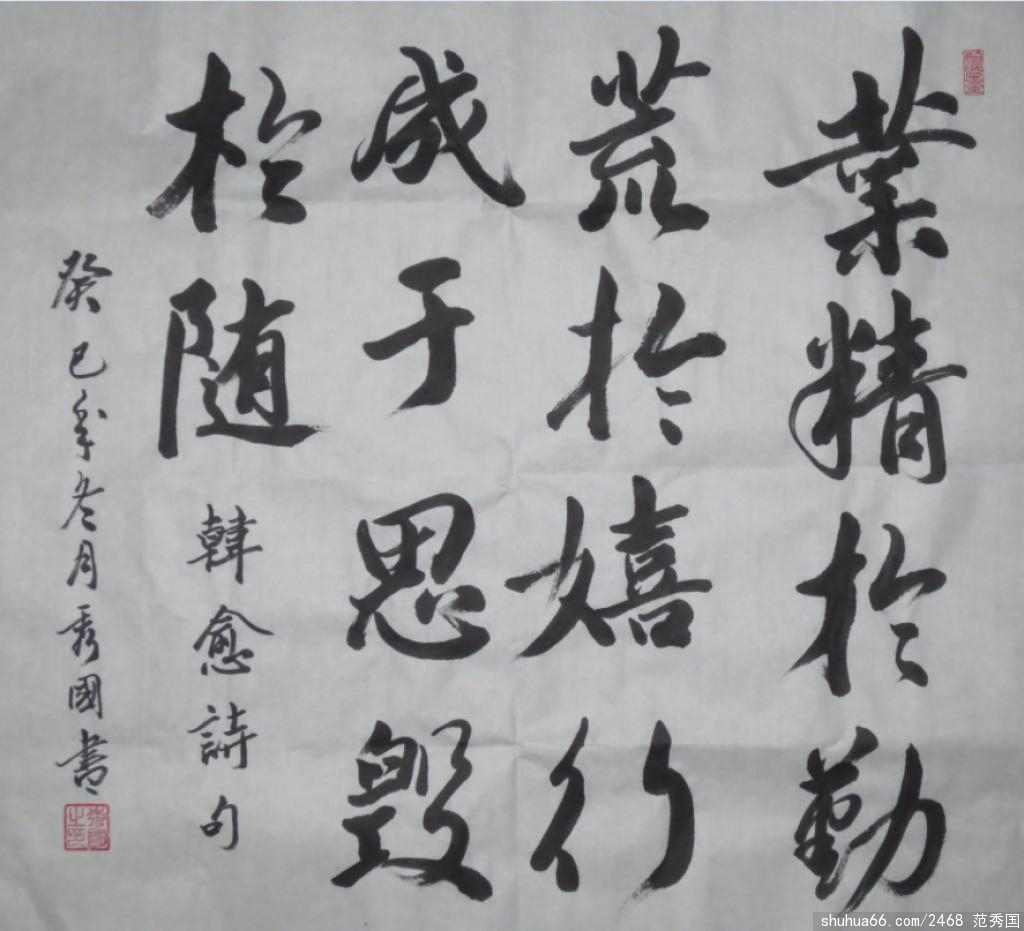 業精於勤
荒於嬉行
成于思毀
於随
韓愈詩句
癸巳年冬月秀國書
秀國之印
shuhua66.com/2468 范秀国